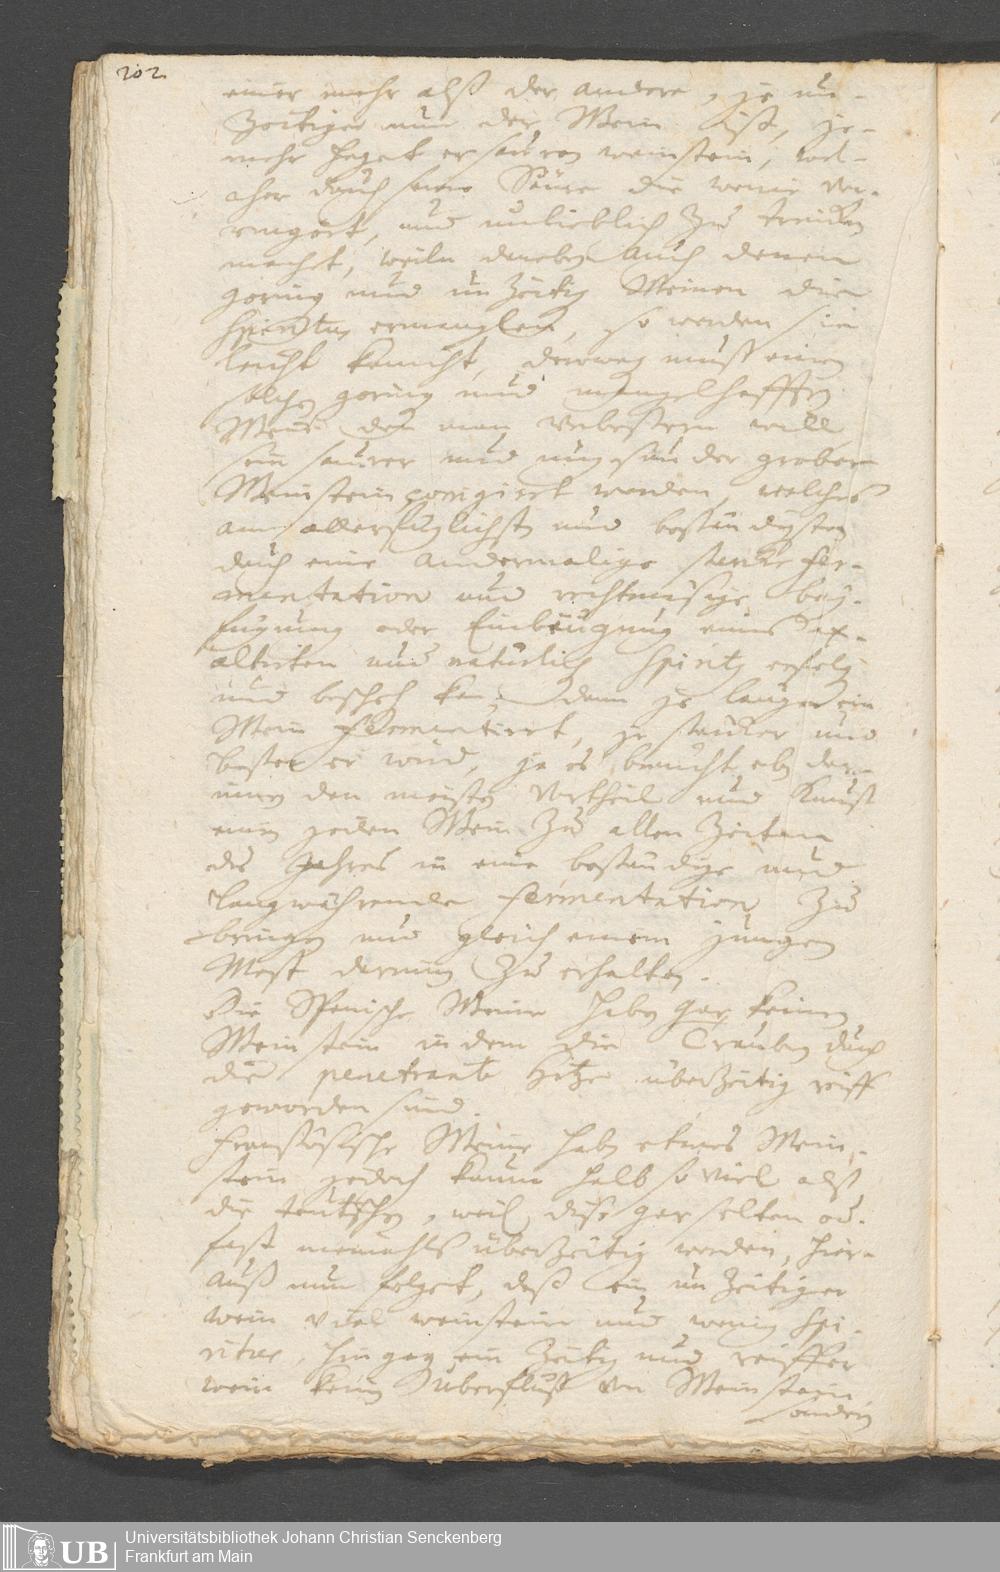 202
einer mehr alß der andere, je un-
Zeitiger nun der Wein ist, je-
mehr heget er sauren weinstein, wel-
cher durch seine Säure die weine ver-
ringert, und unlieblich Zu trincken
machet, weiln daneben auch denen
gering und un Zeitig Weinen die
Spiritus ermanglen, so werden sie
leicht kranck, derweg muß einem
solchen gering und mangelhafften
Wein den man verbessern will
sein saurer und ungesunder grober
Weinstein corrigiert werden, welches
am allerfüglichsten und beständigsten
durch eine andermalige starcke fer-
mentation und rechtmäsige bey-
fügung oder Einbringung eines ex-
altirten und natürlich Spirits
und bescheh kan, dann je länger ein
Wein fermentirt, je stärcker und
besser er wird, ja es
den meisten Vortheil und Kunst
einen jeden Wein Zu allen Zeiten
des Jahres in eine beständige und
langwährende fermentation Zu
bringen und gleich einem jungen
Most darinn Zu erhalten.
Die Spanische Weine haben gar keinen
Weinstein in dem die Trauben durch
die penetrante Hitze überzeitig reiff
geworden sind.
Frantzösische Weine haben etwas Wein-
stein jedoch kaum halb so viel alß
die teutschen, weil diese gar selten od.
fast niemahls überzeitig werden, hier-
auß nun folget, daß ein un Zeitiger
wein viel weinstein und wenig Spi-
ritus, hingeg ein Zeitig und reiffer
wein kein überfluß an Weinstein
sondern
Universitätsbibliothek Johann Christian Senckenberg
Frankfurt am Main
UB